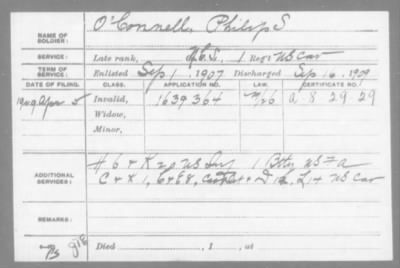 O'Connell, Philip S
NAME OF SOLDIER:
SERVICE: Late rank, N.C.S., 1 Reg't US Cav
TERM OF SERVICE: Enlisted Sep 1, 1907 Discharged Sep 16, 1909
DATE OF FILING. CLASS. APPLICATION NO. LAW. CERTIFICATE NO.
Apr 5 Invalid, 1639364 a 8 29 29
Widow,
Minor,
ADDITIONAL SERVICES: H 6 & K US Inf 1 Btty US
C & K 1, 6 & E 8, & D US Cav
REMARKS:
Died , 1 , at